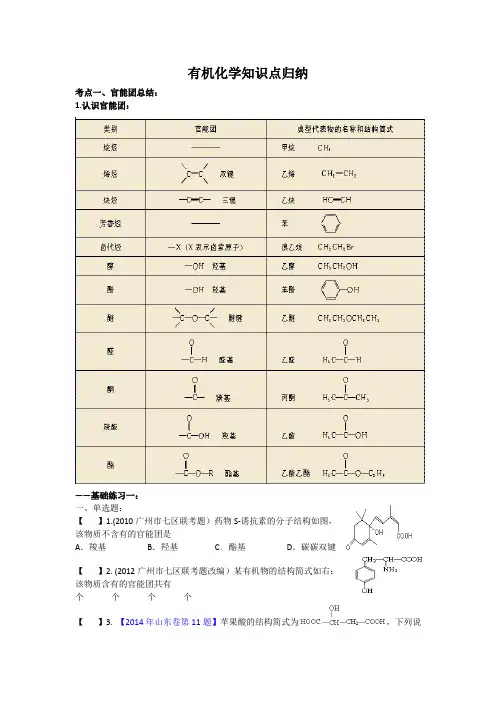 有机化学知识点归纳
考点一、官能团总结：
1.认识官能团：
类别 官能团 典型代表物的名称和结构简式
烷烃 —— 甲烷 CH₄
烯烃 C=C 双键 乙烯 CH₂=CH₂
炔烃 —C≡C— 三键 乙炔 HC≡CH
芳香烃 —— 苯
卤代烃 —X（X表示卤素原子） 溴乙烷 CH₃CH₂Br
醇 —OH 羟基 乙醇 CH₃CH₂OH
酚 —OH 羟基 苯酚 —OH
醚 C—O—C 醚键 乙醚 CH₃CH₂OCH₂CH₃
醛 O —C—H 醛基 乙醛 O H₃C—C—H
酮 O —C— 羰基 丙酮 O H₃C—C—CH₃
羧酸 O —C—OH 羧基 乙酸 O H₃C—C—OH
酯 O —C—O—R 酯基 乙酸乙酯 O H₃C—C—O—C₂H₅
——基础练习一：
一、单选题：
【 】1.(2010广州市七区联考题）药物S-诱抗素的分子结构如图，
该物质不含有的官能团是
OH COOH O
A．羧基 B．羟基 C．酯基 D．碳碳双键
【 】2. (2012广州市七区联考题改编）某有机物的结构简式如右：
该物质含有的官能团共有
CH₂—CH—COOH NH₂ OH
个 个 个 个
【 】3. 【2014年山东卷第11题】苹果酸的结构简式为 OH HOOC—CH—CH₂—COOH，下列说